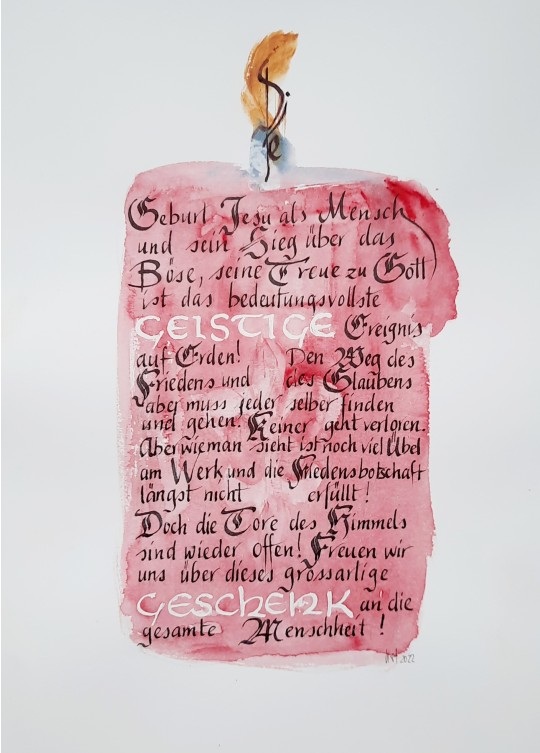 Die
Geburt Jesu als Mensch
und sein Sieg über das
Böse, seine Treue zu Gott
ist das bedeutungsvollste
GEISTIGE Ereignis
auf Erden! Den Weg des
Friedens und des Glaubens
aber muss jeder selber finden
und gehen. Keiner geht verloren.
Aber wie man sieht ist noch viel Übel
am Werk und die Friedensbotschaft
längst nicht erfüllt!
Doch die Tore des Himmels
sind wieder offen! Freuen wir
uns über dieses grossartige
GESCHENK an die
gesamte Menschheit!
2022